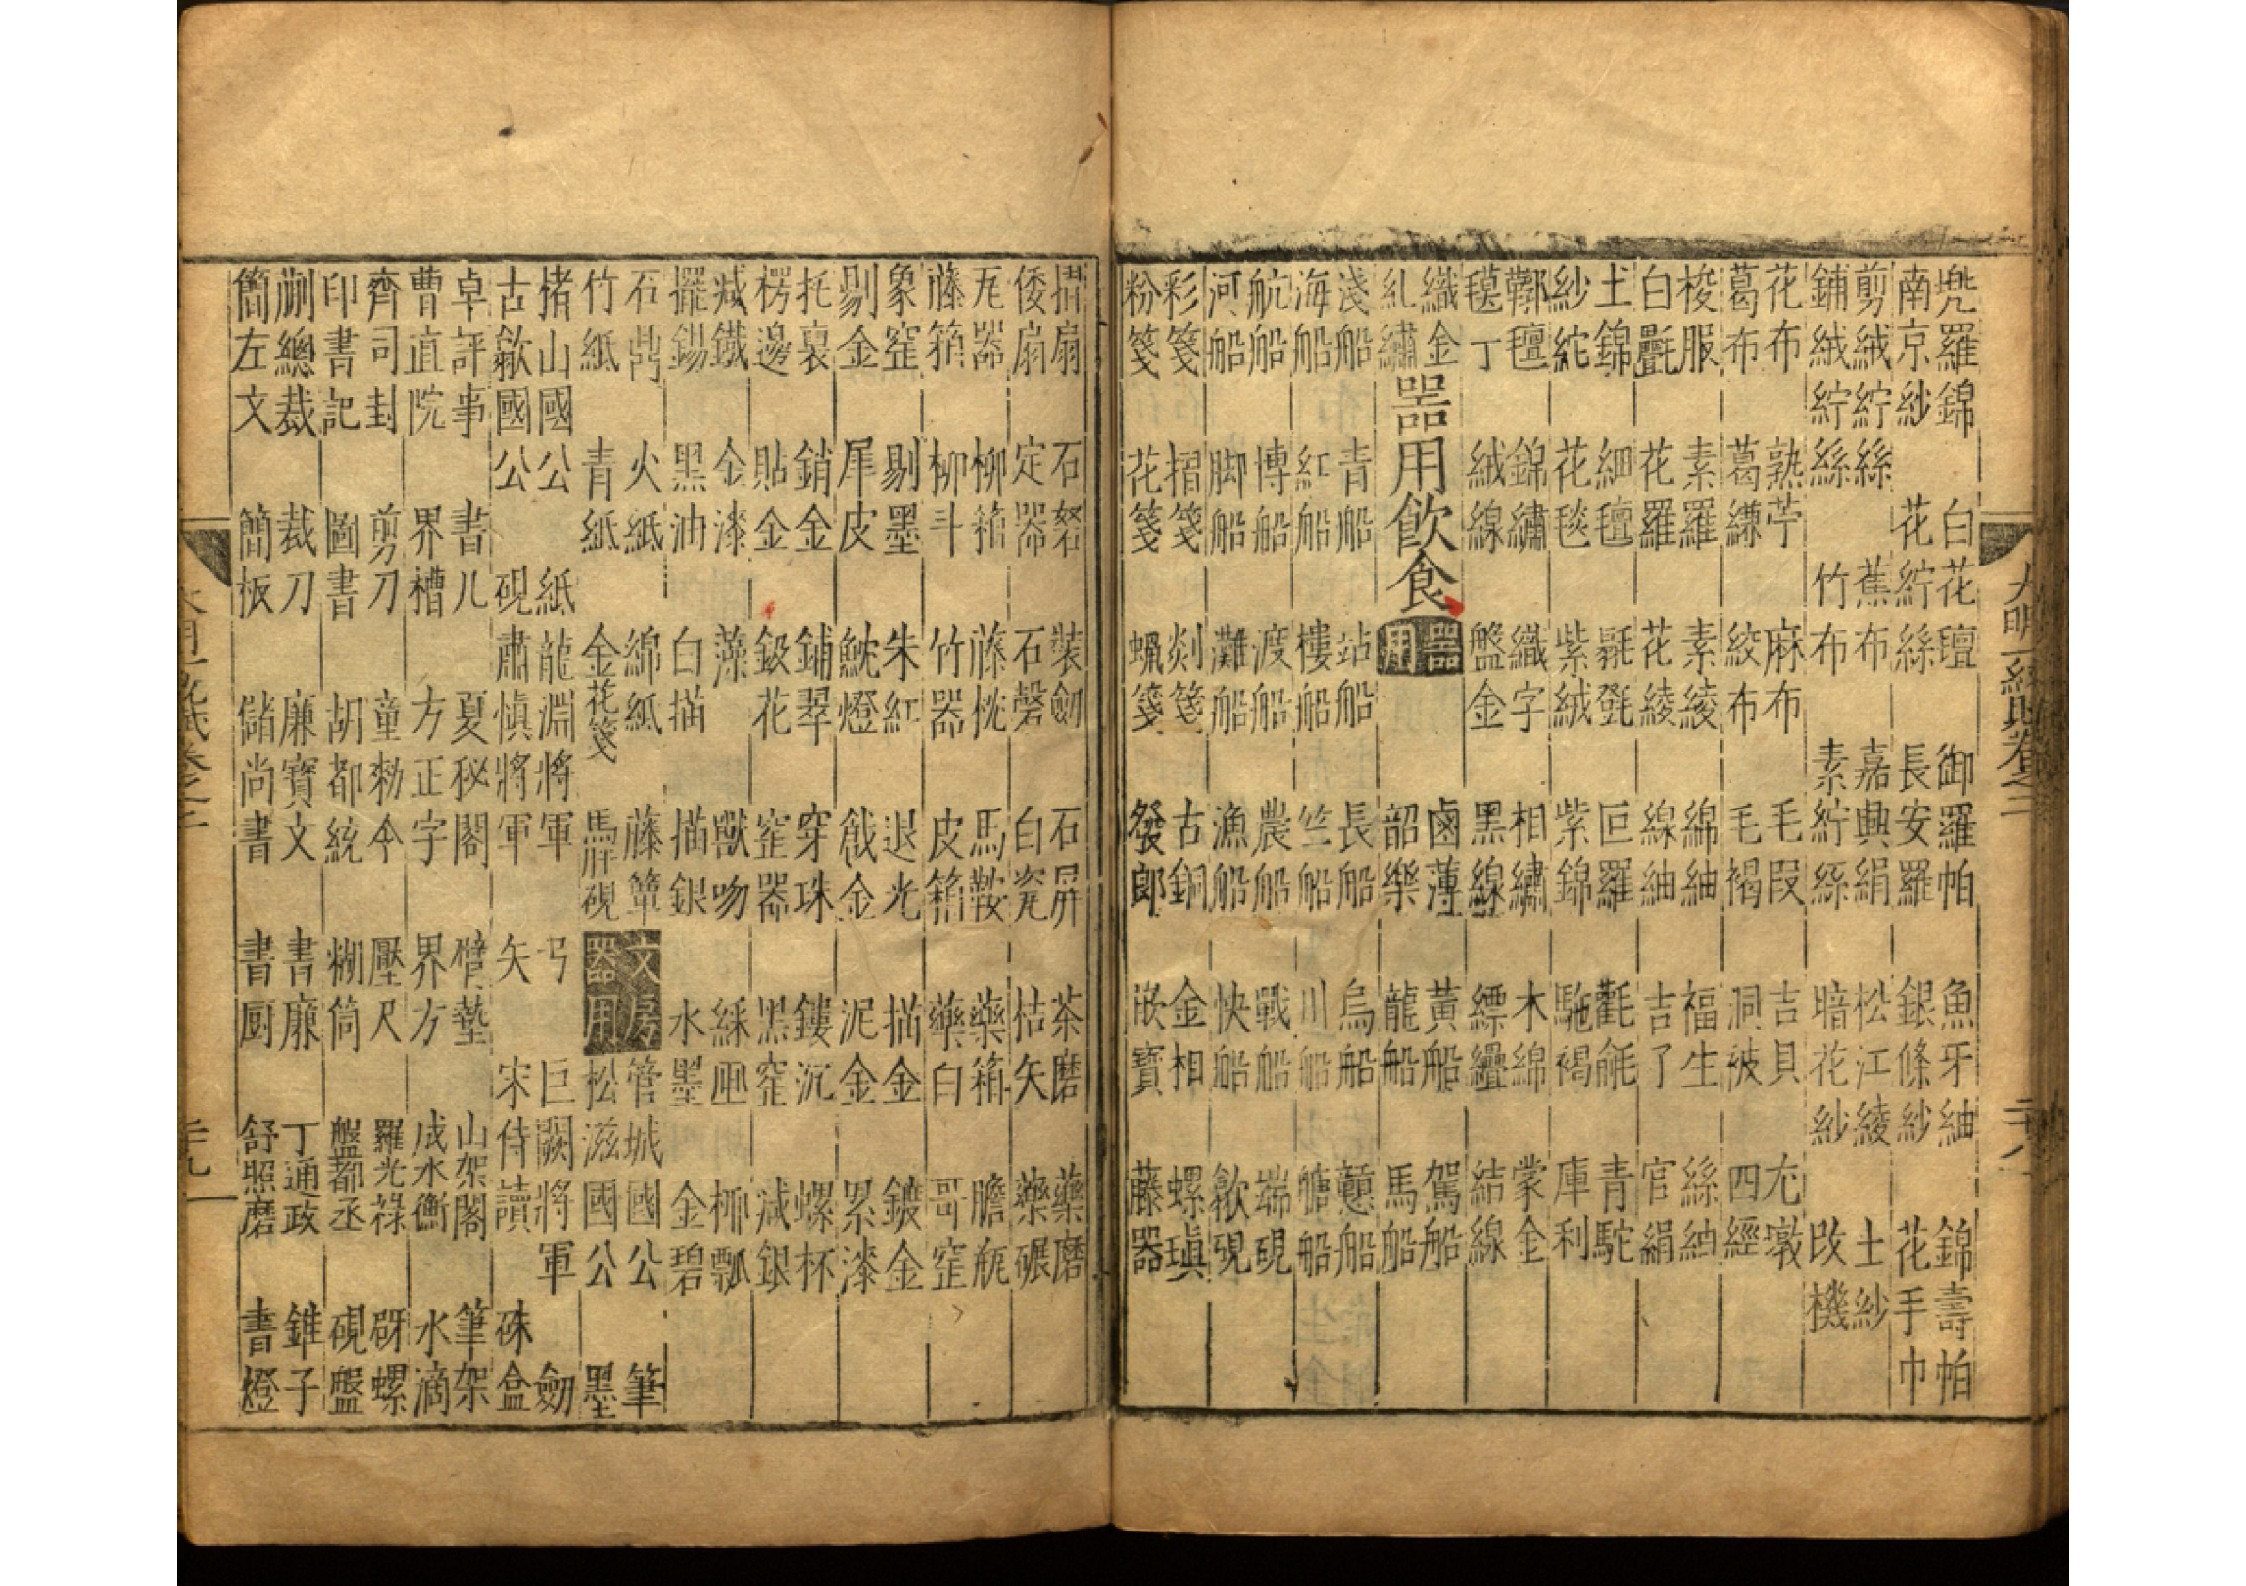 大明一統賦卷之二 二十八
兜羅錦 白花氊 御羅帕 魚牙紬 錦壽帕
南京紗 花紵絲 長安羅 銀條紗 花手巾
剪絨紵絲 蕉布 嘉興絹 松江綾 土紗
鋪絨紵絲 竹布 素紵絲 暗花紗 改機
花布 熟苧 麻布 毛段 吉貝 尤墩
葛布 葛縑 絞布 毛褐 洞被 四經
梭服 素羅 素綾 綿紬 福生 絲紬
白㲲 花羅 花綾 線紬 吉了 官絹
土錦 細氊 毾㲪 叵羅 氍毹 青駝
紗 花毯 紫絨 紫錦 駞褐 庫利
氊 錦繡 織字 相繡 木綿 蒙金
丁 絨線 盤金 黑線 縹 結線
織金
糺繡
器用飲食
器用
鹵薄 黃船 駕船
韶樂 龍船 馬船
淺船 青船 站船 長船 烏船 船
海船 紅船 樓船 竺船 川船 船
航船 博船 渡船 農船 戰船 端硯
河船 脚船 灘船 漁船 快船 歙硯
彩箋 摺箋 剡箋 古銅 金相 螺瑱
粉箋 花箋 蠟箋 發郎 嵌寶 藤器
摺扇 石砮 裝劒 石屏 茶磨 藥磨
倭扇 定器 石磬 白瓷 桔矢 藥碾
瓦器 柳箱 藤枕 馬鞍 藥箱 膽瓶
藤箱 柳斗 竹器 皮箱 藥臼 哥窑
象窑 剔墨 朱紅 退光 描金 鍍金
剔金 犀皮 魫燈 戧金 泥金 累漆
托裏 銷金 鋪翠 穿珠 鏤沉 螺杯
楞邊 貼金 鈒花 窑器 黑窑 減銀
減鐵 金漆 藻 獸吻 綵匣 椰瓢
擺錫 黑油 白描 描銀 水墨 金碧
石鼎 火紙 綿紙 藤簟
竹紙 青紙 金花箋 馬肝硯
文房
器用
管城國公 筆
松滋國公 墨
楮山國公 紙 龍淵將軍 弓 巨闕將軍 劒
古歙國公 硯 肅愼將軍 矢 宋侍讀 硃盒
卓評事 書几 夏秘閣 臂墊 山架閣 筆架
曹直院 界槽 方正字 界方 成水衡 水滴
齊司封 剪刀 童勑令 壓尺 羅光祿 砑螺
印書記 圖書 胡都統 糊筒 盤都丞 硯盤
蒯總裁 裁刀 廉寶文 書廉 丁通政 錐子
簡左文 簡板 儲尚書 書厨 舒照磨 書燈
大明一統賦卷之二 二十九